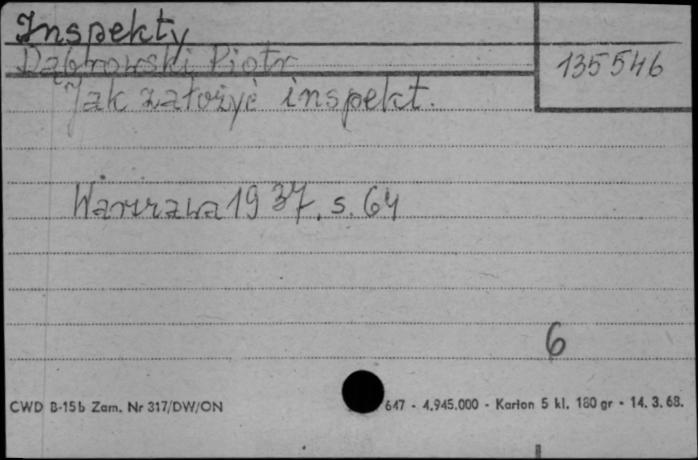 Inspekty
Dąbrowski Piotr
135546
Jak założyć inspekt.
Warszawa 1937, s. 64
6
CWD B-15b Zam. Nr 317/DW/ON
647 - 4.945.000 - Karton 5 kl. 180 gr - 14. 3. 68.